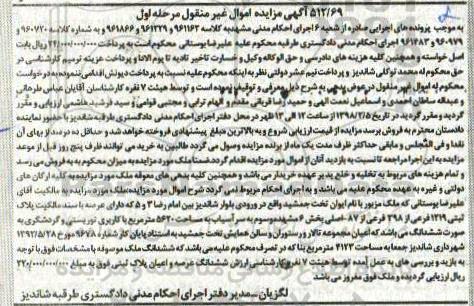 ۵۱۲/۶۹ آگهی مزایده اموال غیر منقول مرحله اول
به موجب پرونده های اجرایی صادره از شعبه ۶ اجرای احکام مدنی مشهد به کلاسه ۹۶۱۱۶۳ و ۹۶۱۲۲۹ و ۹۶۱۸۶۶ و به شماره کلاسه ۹۶۰۷۲۰ و
۹۶۰۹۷۹ و ۹۶۱۴۸۳ اجرای احکام مدنی دادگستری طرقبه محکوم علیه علیرضا بوستانی محکوم است به پرداخت ۲۴/۰۰۰/۰۰۰/۰۰۰ ریال بابت
اصل خواسته و همچنین کلیه هزینه های دادرسی و حق الوکاله وکیل و خسارت تاخیر تادیه تا یوم الادا و پرداخت هزینه ترمیم کارشناسی در
حق محکوم له محمد توکلی شاندیز و پرداخت نیم عشر دولتی نظر به اینکه محکوم علیه نسبت به پرداخت دیونش اقدامی ننموده به درخواست
محکوم له اموال غیر منقول در عوض بدهی به شرح ذیل معرفی و توقیف نموده است و توسط هیئت ۷ نفره کارشناسان آقایان عباس طرمانی
و عبداله سلطان احمدی و اسماعیل نعمت الهی و حمیدرضا قربانی مقدم و الهام ترابی و مجتبی قوامی و سید فرشید هاشمی ارزیابی و مقرر
گردید و مقرر گردید در تاریخ ۱۳۹۸/۲/۵ از ساعت ۱۲ الی ۱۳ ظهر در محل دفتر اجرای احکام مدنی دادگستری طرقبه شاندیز با حضور نماینده
دادستان محترم به فروش برسد مزایده از قیمت ارزیابی شروع و به بالاترین مبلغ پیشنهادی فروخته خواهد شد و حداقل ده درصد از بهای آن
نقدا و فی المجلس و مابقی حداکثر ظرف مدت یک ماه از برنده مزایده وصول می گردد طالبین به خرید می توانند ظرف پنج روز قبل از موعد
مزایده به این اجرا مراجعه تا نسبت به بازدید آنان از اموال مورد مزایده اقدام گردد ضمنا ملک مورد مزایده به میزان محکوم به به فروش می رسد
و تمام هزینه های مربوط به تخلیه و خلع ید بر عهده خریدار می باشد و همچنین کلیه بدهی های معوقه ملک مورد مزایده به کلیه ارگان های
دولتی و غیره به عهده محکوم علیه می باشد و به اجرای احکام مربوط نمی گردد شرح اموال مورد مزایده: ملک مورد مزایده به مالکیت آقای
علیرضا بوستانی که ملک مزبور با نام ایوان تخت جمشید واقع در ورودی بلوار شاندیز بین امام رضا ۳ و ۵ که دارای عرصه با سند مالکیت پلاک
ثبتی ۱۲۱۹ فرعی از ۳۹۸ فرعی از ۸۷- اصلی بخش ۶ مشهد موسوم به سرآسیاب به مساحت ۵۶۲۰ مترمربع با کاربری توریستی و گردشگری به
صورت ششدانگ می باشد که اعیان مجموعه تالار و رستوران و سالن همایش تخت جمشید به استناد پایان کار شماره ۹۶۷۸ مورخ ۱۳۹۲/۵/۲۸
شهرداری شاندیز جمعا به مساحت ۴۱۲۳ مترمربع بنا که در تصرف محکوم علیه می باشد که ششدانگ ملک موصوفه با مشخصات فوق با توجه
به بازید و بررسی های به عمل آمده توسط هیئت ۷ نفره کارشناسی ارزش ششدانگ عرصه و اعیان پلاک ثبتی فوق به مبلغ ۲۲۰/۰۰۰/۰۰۰/۰۰۰
ریال ارزیابی گردیده و ملک فوق مفروز می باشد
لگزیان_مدیر دفتر اجرای احکام مدنی دادگستری طرقبه شاندیز